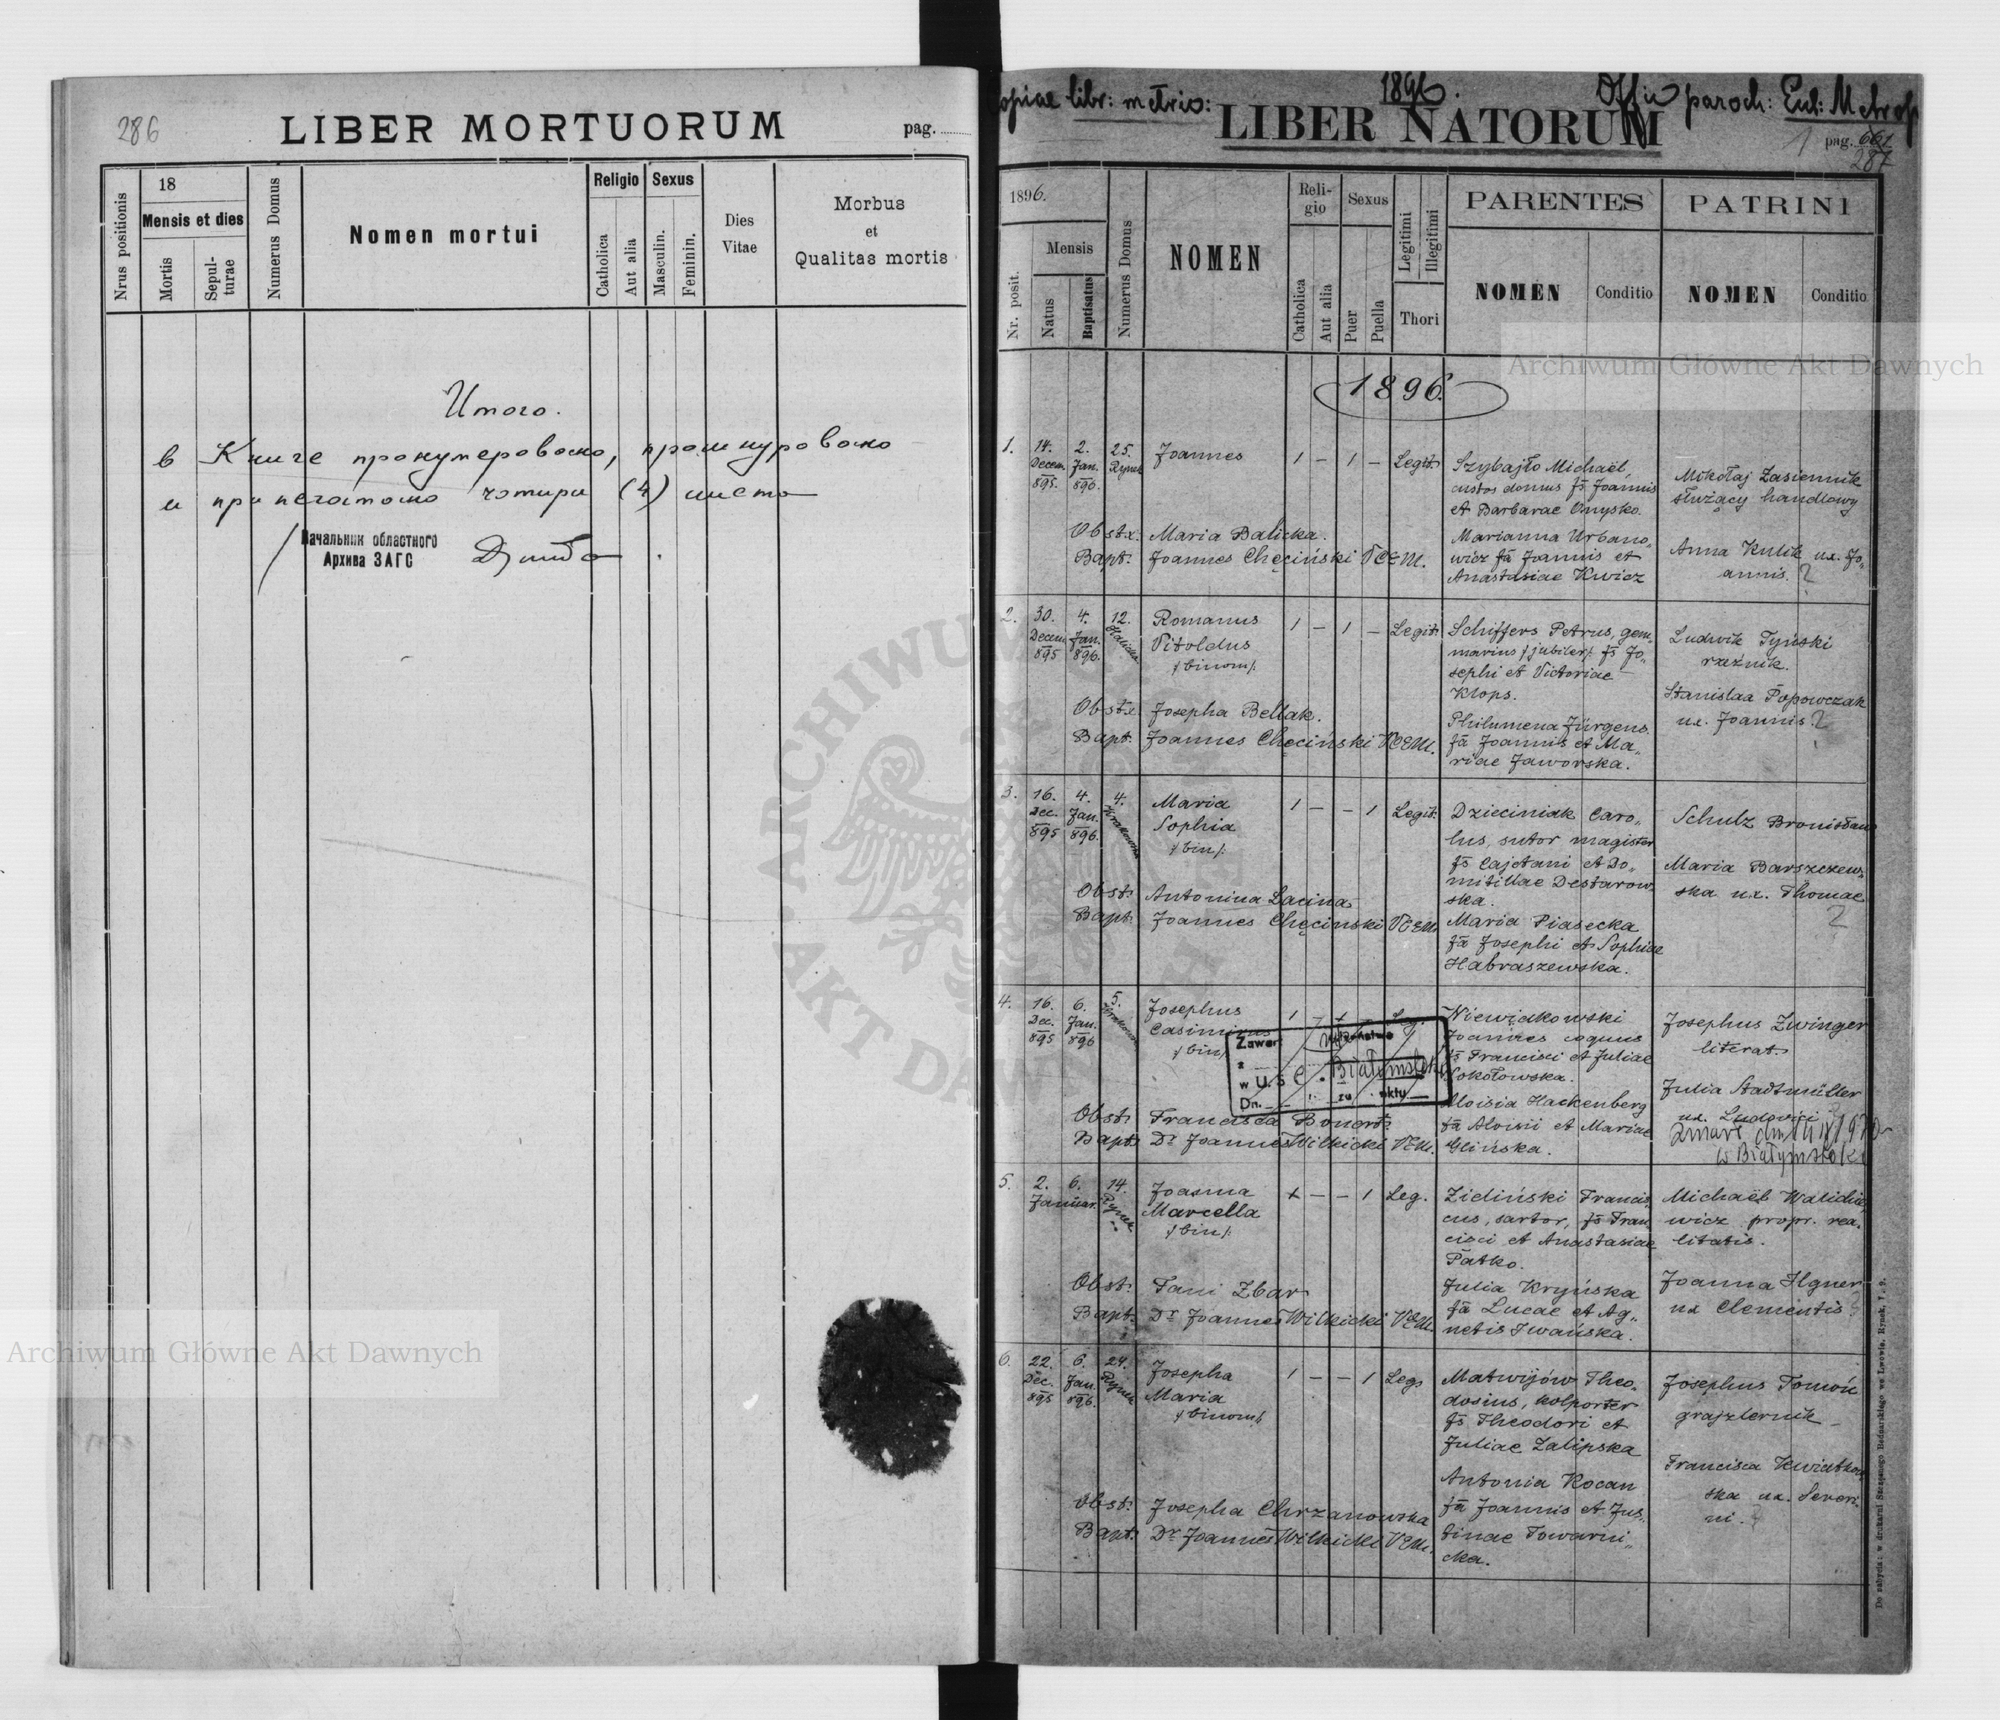 286
LIBER MORTUORUM
pag.
Nrus positionis
18
Mensis et dies
Mortis
Sepul-
turae
Numerus Domus
Nomen mortui
Religio
Catholica
Aut alia
Sexus
Masculin.
Feminin.
Dies
Vitae
Morbus
et
Qualitas mortis
Итого.
в Книге пронумеровано, прошнуровано
и припечатано чотири (4) листа
Начальник областного
Архива ЗАГС
Archiwum Główne Akt Dawnych
opiae libr: metric: 1896. paroch: Metrop
LIBER NATORUM
1
pag. 661
287
1896.
Nr. posit.
Mensis
Natus
Baptisatus
Numerus Domus
NOMEN
Reli-
gio
Catholica
Aut alia
Sexus
Puer
Puella
Legitimi
Illegitimi
Thori
PARENTES
NOMEN
Conditio
PATRINI
NOMEN
Conditio
Archiwum Główne Akt Dawnych
1896.
1. 14. Decem. 895. 2. Jan. 896. 25. Rynek
Joannes
1 – 1 – Legit.
Szybajło Michaël,
custos domus fs Joannis
et Barbarae Onysko.
Marianna Urbano„
wicz fa Joannis et
Anastasiae Kwicz
Mikołaj Zasiennik
służący handlowy
Anna Kulik ux. Jo„
annis. ?
Obstx. Maria Balicka.
Bapt. Joannes Chęciński VCEM.
2. 30. Decem. 895 4. Jan. 896. 12. Halicka
Romanus
Vitoldus
/binom/.
1 – 1 – Legit.
Schiffers Petrus, gem„
marius /jubiler/. fs Jo„
sephi et Victoriae
Klops.
Philumena Jürgens
fa Joannis et Ma„
riae Jaworska.
Ludwik Tyński
rzeźnik.
Stanislaa Popowczak
ux. Joannis. ?
Obstx. Josepha Bellak.
Bapt. Joannes Chęciński VCEM.
3. 16. Dec. 895 4. Jan. 896. 4. Krakowska
Maria
Sophia
/bin/.
1 – – 1 Legit.
Dzieciniak Caro„
lus, sutor magister
fs Cajetani et Do„
mitillae Destarow„
ska.
Maria Piasecka
fa Josephi et Sophiae
Habraszewska.
Schulz Bronisław
Maria Barszczew„
ska ux. Thomae
?
Obst. Antonina Lacina
Bapt. Joannes Chęcinski VCEM.
4. 16. Dec. 895 6. Jan. 896 5. Krakowska
Josephus
Casimirus
/bin/.
1 – 1 – Leg.
Niewiadkowski
Joannes coquus
fs Francisci et Juliae
Sokołowska.
Aloisia Hackenberg
fa Aloisii et Mariae
Glińska.
Josephus Zwinger
literat.
Julia Stadtmüller
ux. Ludovici
w Białymstoku
Zawar małżeństwo
z
w U.S.C. Białymstoku
Dn.
Obst. Francisca Bonert.
Bapt. Dr Joannes Wilkicki VEM.
5. 2. 6. Januar. 14. Rynek
Joanna
Marcella
/bin/.
1 – – 1 Leg.
Zieliński Francis„
cus, sartor, fs Fran„
cisci et Anastasiae
Patko.
Julia Kryńska
fa Lucae et Ag„
netis Iwańska.
Michaël Walidie„
wicz propr. rea„
litatis.
Joanna Ilgner
ux Clementis ?
Obst. Fani Zbar
Bapt. Dr Joannes Wilkicki VCEM.
6. 22. Dec. 895 6. Jan. 896. 24. Rynek
Josepha
Maria
/binom/.
1 – – 1 Leg.
Matwijów Theo„
dosius, kolporter
fs Theodori et
Juliae Zalipska
Antonia Kocan
fa Joannis et Jus„
tinae Towarni„
cka.
Josephus Tomoń
grajzlernik
Francisca Kwiatkow„
ska ux. Severi„
ni. ?
Obst. Josepha Chrzanowska
Bapt. Dr Joannes Wilkicki VEM.
Do nabycia: w drukarni Szczęsnego Bednarskiego we Lwowie, Rynek, l. 9.
ARCHIWUM GŁÓWNE AKT DAWNYCH